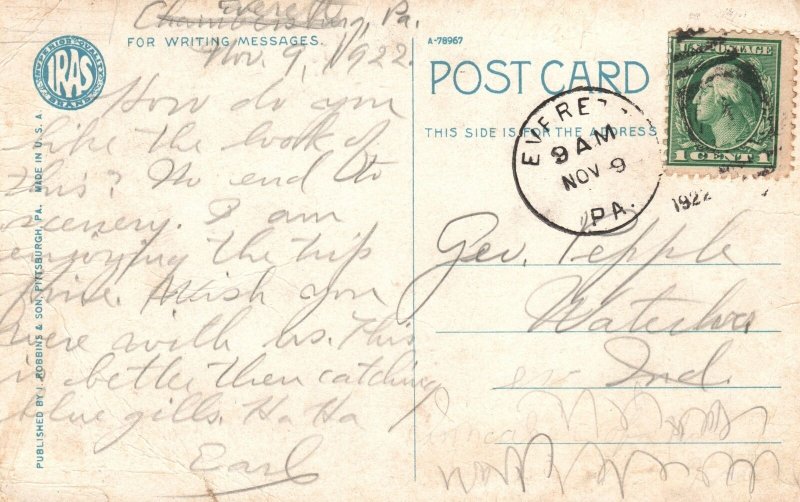 Everett
Chambersburg, Pa.
FOR WRITING MESSAGES.
Nov. 9, 1922.
How do you
like the look of
this? No end to
scenery. I am
enjoying the trip
fine. Wish you
were with us. This
is better then catching
blue gills. Ha Ha
Earl
SUPERIOR QUALITY
IRAS
BRAND
PUBLISHED BY I. ROBBINS & SON, PITTSBURGH, PA. MADE IN U.S.A
A-78967
POST CARD
THIS SIDE IS FOR THE ADDRESS
U.S. POSTAGE
1 CENT 1
EVERETT
9 AM
NOV 9
1922
PA.
Geo. Pepple
Waterloo
Ind.